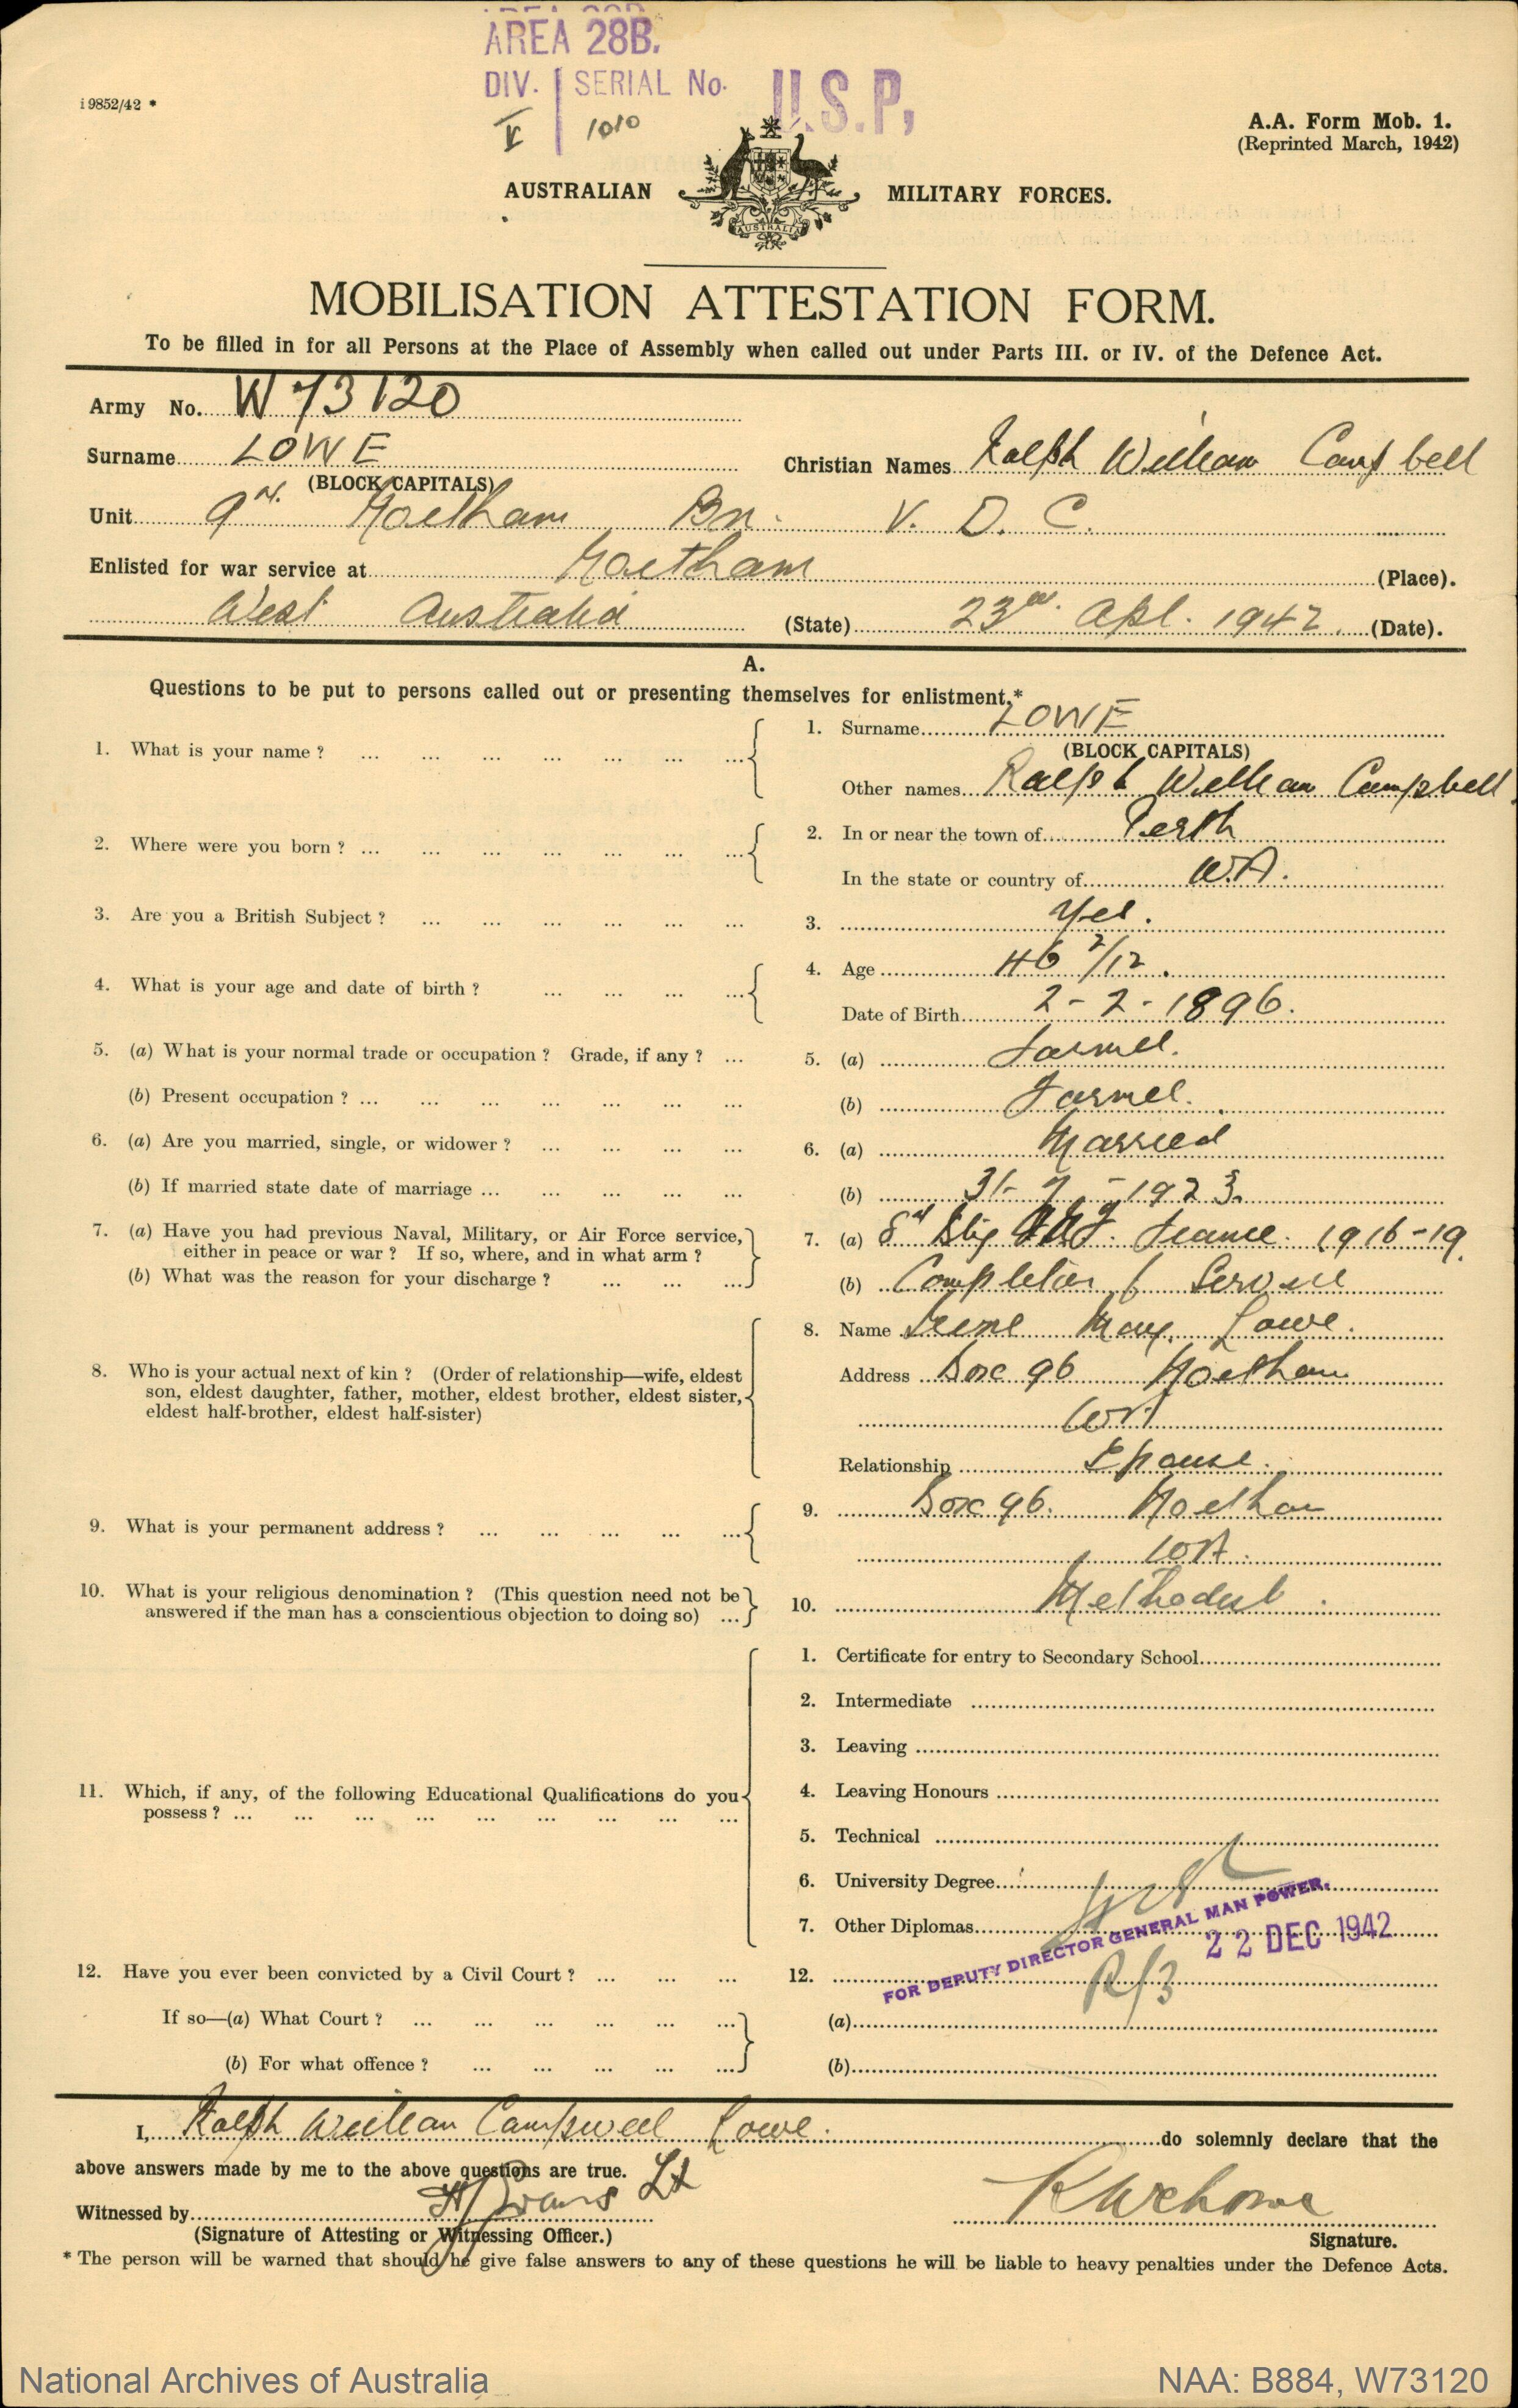 AREA 28B.
DIV. SERIAL No. U.S.P.
V 1010
i 9852/42 *
A.A. Form Mob. 1.
(Reprinted March, 1942)
AUSTRALIAN MILITARY FORCES.
AUSTRALIA
MOBILISATION ATTESTATION FORM.
To be filled in for all Persons at the Place of Assembly when called out under Parts III. or IV. of the Defence Act.
Army No. W73120
Surname LOWE Christian Names Ralph William Campbell
(BLOCK CAPITALS)
Unit 9th Northam Bn. V. D. C.
Enlisted for war service at Northam (Place).
West Australia (State) 23rd Apl. 1942 (Date).
A.
Questions to be put to persons called out or presenting themselves for enlistment.*
1. What is your name ? ... 1. Surname LOWE
(BLOCK CAPITALS)
Other names Ralph William Campbell
2. Where were you born ? ... 2. In or near the town of Perth
In the state or country of W.A.
3. Are you a British Subject ? ... 3. Yes.
4. What is your age and date of birth ? ... 4. Age 46 2/12.
Date of Birth 2-2-1896.
5. (a) What is your normal trade or occupation ? Grade, if any ? ... 5. (a) Farmer.
(b) Present occupation ? ... (b) Farmer.
6. (a) Are you married, single, or widower ? ... 6. (a) Married
(b) If married state date of marriage ... (b) 31-7-1923.
7. (a) Have you had previous Naval, Military, or Air Force service, either in peace or war ? If so, where, and in what arm ? 7. (a) Sig A.I.F. France. 1916-19.
(b) What was the reason for your discharge ? ... (b) Completion of Service
8. Who is your actual next of kin ? (Order of relationship—wife, eldest son, eldest daughter, father, mother, eldest brother, eldest sister, eldest half-brother, eldest half-sister)
8. Name Irene May Lowe.
Address Box 96 Northam
WA
Relationship Spouse.
9. What is your permanent address ? ... 9. Box 96. Northam
WA.
10. What is your religious denomination ? (This question need not be answered if the man has a conscientious objection to doing so) ... 10. Methodist.
11. Which, if any, of the following Educational Qualifications do you possess ? ...
1. Certificate for entry to Secondary School
2. Intermediate
3. Leaving
4. Leaving Honours
5. Technical
6. University Degree
7. Other Diplomas
FOR DEPUTY DIRECTOR GENERAL MAN POWER.
22 DEC 1942
R/3
12. Have you ever been convicted by a Civil Court ? ... 12.
If so—(a) What Court ? ... (a)
(b) For what offence ? ... (b)
I, Ralph William Campbell Lowe. do solemnly declare that the
above answers made by me to the above questions are true.
Witnessed by Evans Lt R W C Lowe
(Signature of Attesting or Witnessing Officer.) Signature.
* The person will be warned that should he give false answers to any of these questions he will be liable to heavy penalties under the Defence Acts.
National Archives of Australia NAA: B884, W73120